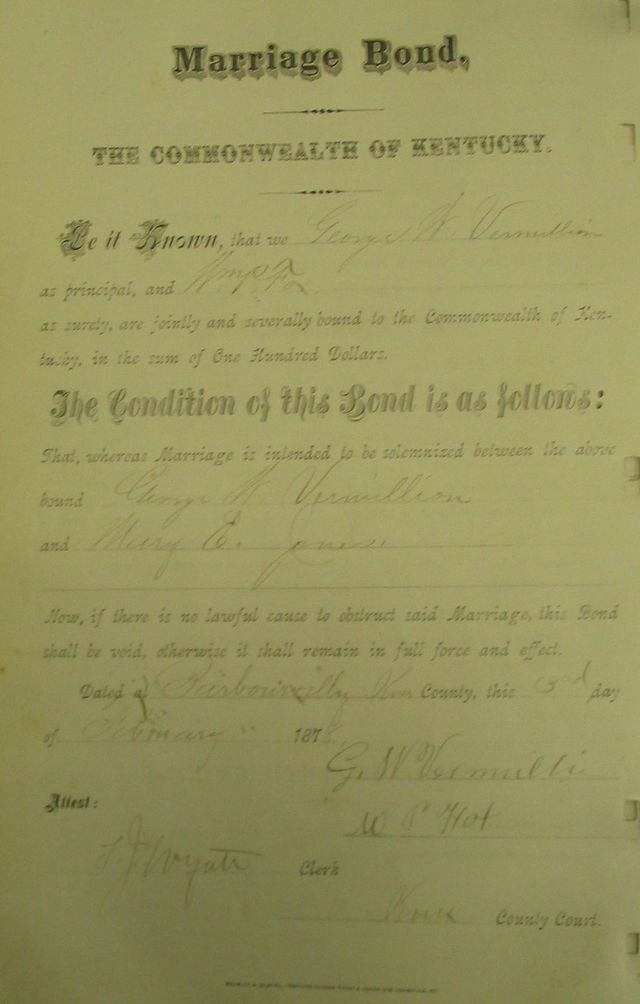 Marriage Bond,
THE COMMONWEALTH OF KENTUCKY.
Be it Known, that we George W. Vermillion
as principal, and Wm P. Fox
as surety, are jointly and severally bound to the Commonwealth of Ken-
tucky, in the sum of One Hundred Dollars.
The Condition of this Bond is as follows:
That, whereas Marriage is intended to be solemnized between the above
bound George W. Vermillion
and Mary E. Jones.
Now, if there is no lawful cause to obstruct said Marriage, this Bond
shall be void, otherwise it shall remain in full force and effect.
Dated at Barbourville Knox County, this 3rd day
of February 1878
G. W. Vermilli
W P
Attest:
Wyatt Clerk
Knox County Court.